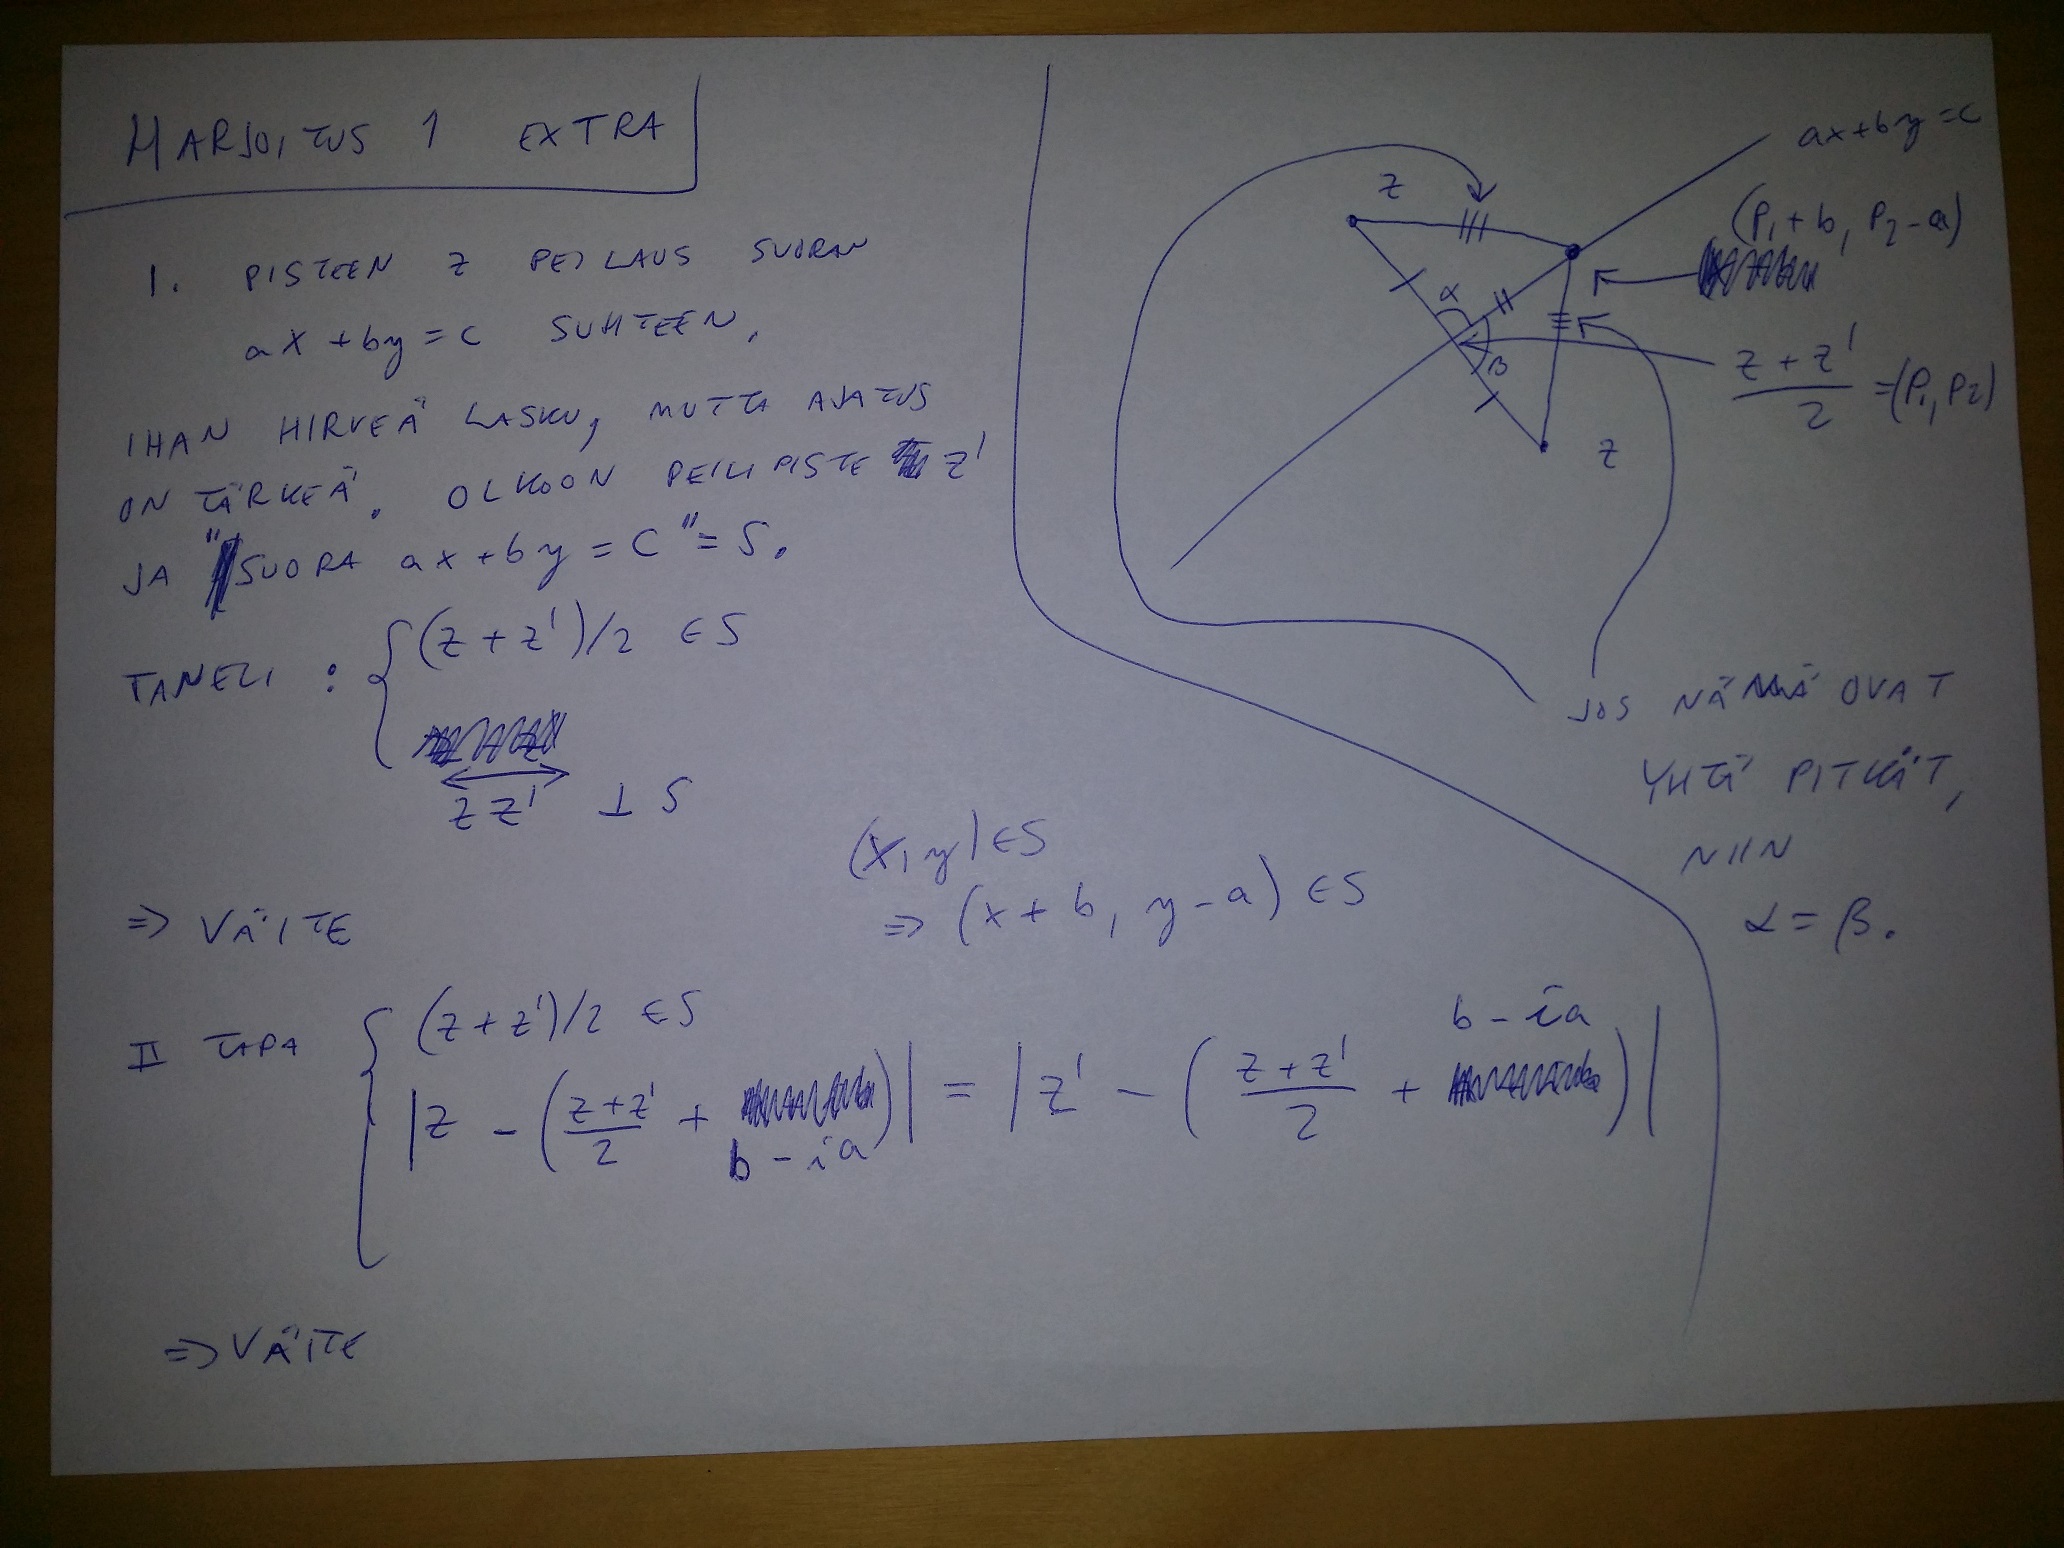 HARJOITUS 1 EXTRA
1. PISTEEN z PEILAUS SUORAN
ax + by = c SUHTEEN.
IHAN HIRVEÄ LASKU, MUTTA AJATUS
ON TÄRKEÄ. OLKOON PEILIPISTE z'
JA "SUORA ax + by = c" = S.
TANELI : { (z + z')/2 ∈ S
zz' ⊥ S
⇒ VÄITE
(x, y) ∈ S
⇒ (x + b, y - a) ∈ S
II TAPA { (z + z')/2 ∈ S
|z - ((z + z')/2 + b - ia)| = |z' - ((z + z')/2 + b - ia)|
⇒ VÄITE
ax + by = c
z
(P1 + b, P2 - a)
α
β
(z + z')/2 = (P1, P2)
z
JOS NÄMÄ OVAT
YHTÄ PITKÄT,
NIIN
α = β.